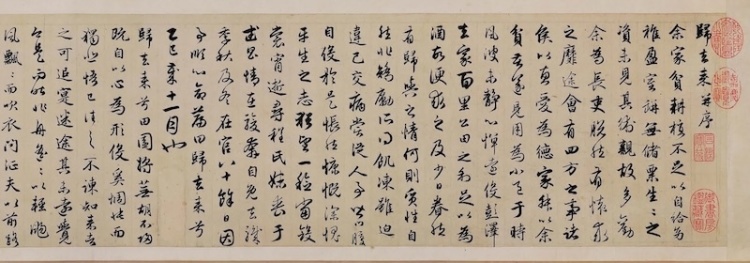 歸去來并序
余家貧耕植不足以自給幼
稚盈室缾無儲粟生生之
資未見其術親故多勸
余為長吏脫然有懷求
之靡途會有四方之事諸
侯以惠愛為德家叔以余
貧苦遂見用為小邑于時
風波未靜心憚遠役彭澤
去家百里公田之利足以為
酒故便求之及少日眷然
有歸與之情何則質性自
然非矯勵所得飢凍雖迫
違己交病嘗從人事皆口腹
自役於是悵然慷慨深愧
平生之志猶望一稔當斂
裳宵逝尋程氏妹喪于
武昌情在駿奔自免去職
季秋及冬在官八十餘日因
事順心命篇曰歸去來兮
乙巳歲十一月也
歸去來兮田園將蕪胡不歸
既自以心為形役奚惆悵而
獨悲悟已往之不諫知來者
之可追寔迷途其未遠覺
今是而昨非舟遙〻以輕颺
風飄〻而吹衣問征夫以前路